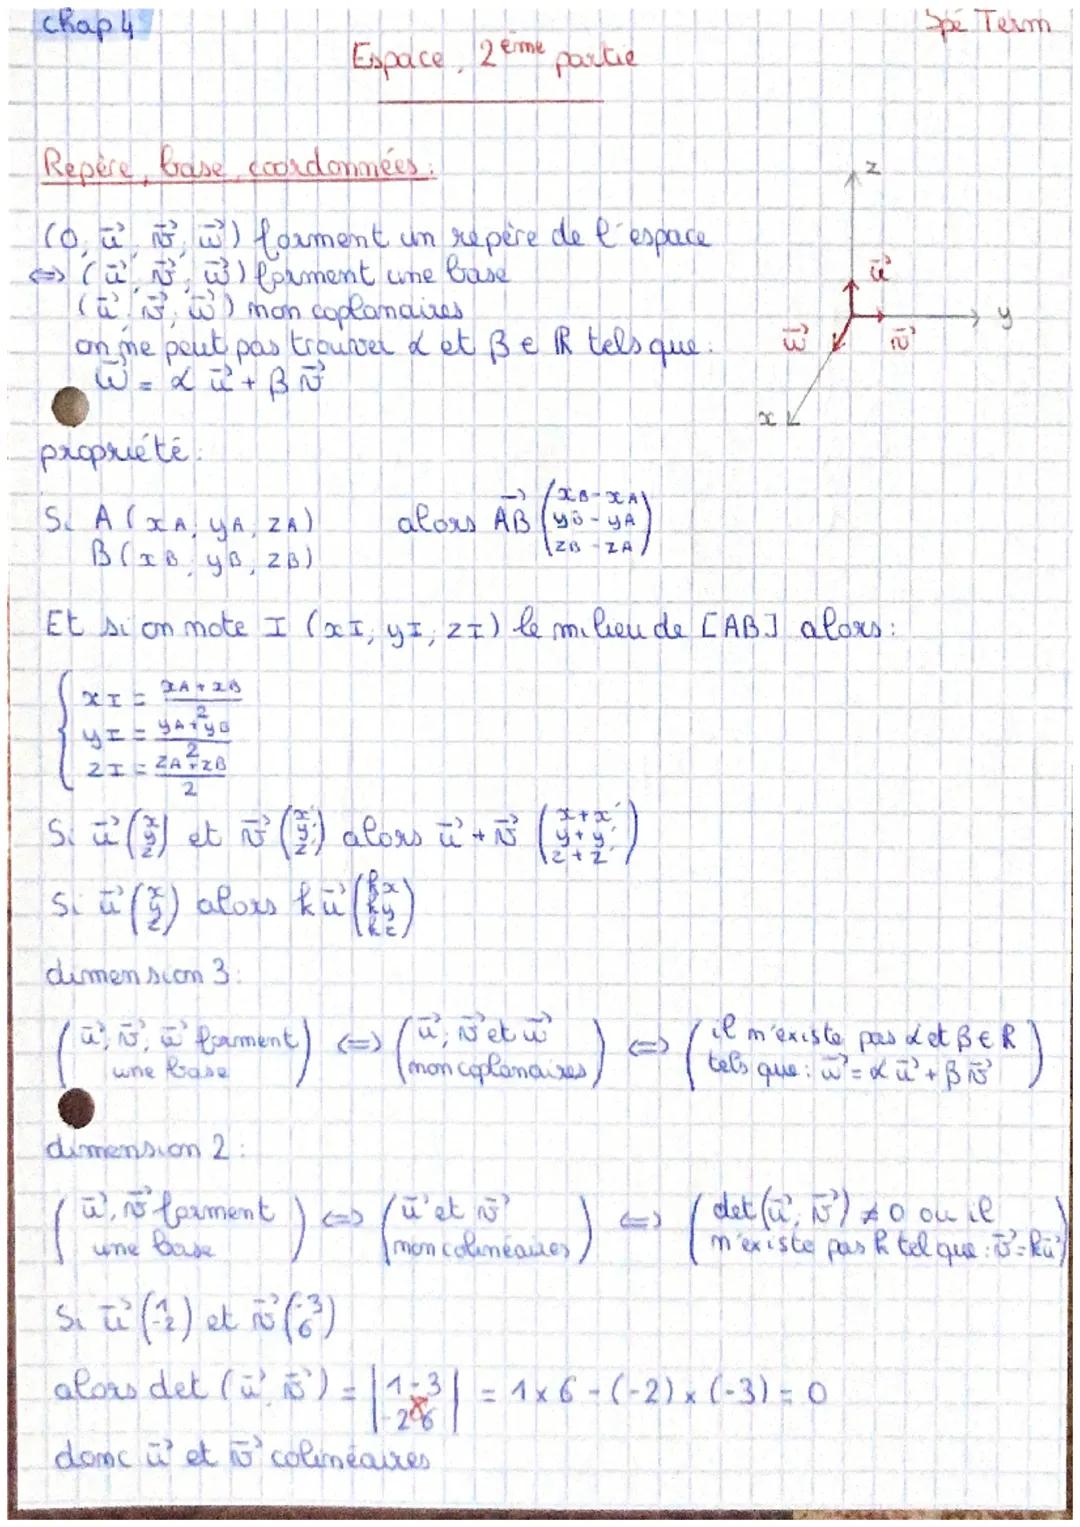 chap 4
Spé Term
Espace, 2ème partie
Repère, base, coordonnées :
(O, u⃗, v⃗, w⃗) forment un repère de l'espace
⇔ (u⃗, v⃗, w⃗) forment une base
(u⃗, v⃗, w⃗) non coplanaires
on ne peut pas trouver α et β ∈ ℝ tels que :
w⃗ = α u⃗ + β v⃗
z
u⃗
y
w⃗
v⃗
x
propriété :
Si A (xA, yA, zA) alors AB⃗ (xB-xA
yB-yA
zB-zA)
B (xB, yB, zB)
Et si on note I (xI, yI, zI) le milieu de [AB] alors :
{ xI = (xA+xB)/2
yI = (yA+yB)/2
zI = (zA+zB)/2
Si u⃗ (x y z) et v⃗ (x' y' z') alors u⃗ + v⃗ (x+x' y+y' z+z')
Si u⃗ (x y z) alors k u⃗ (kx ky kz)
dimension 3 :
(u⃗, v⃗, w⃗ forment une base) ⇔ (u⃗, v⃗ et w⃗ non coplanaires) ⇔ (il n'existe pas α et β ∈ ℝ tels que : w⃗ = α u⃗ + β v⃗)
dimension 2 :
(u⃗, v⃗ forment une base) ⇔ (u⃗ et v⃗ non colinéaires) ⇔ (det(u⃗, v⃗) ≠ 0 ou il n'existe pas k tel que : v⃗ = k u⃗)
Si u⃗ (1 -2) et v⃗ (-3 6)
alors det (u⃗, v⃗) = |1 -3
-2 6| = 1 × 6 - (-2) × (-3) = 0
donc u⃗ et v⃗ colinéaires